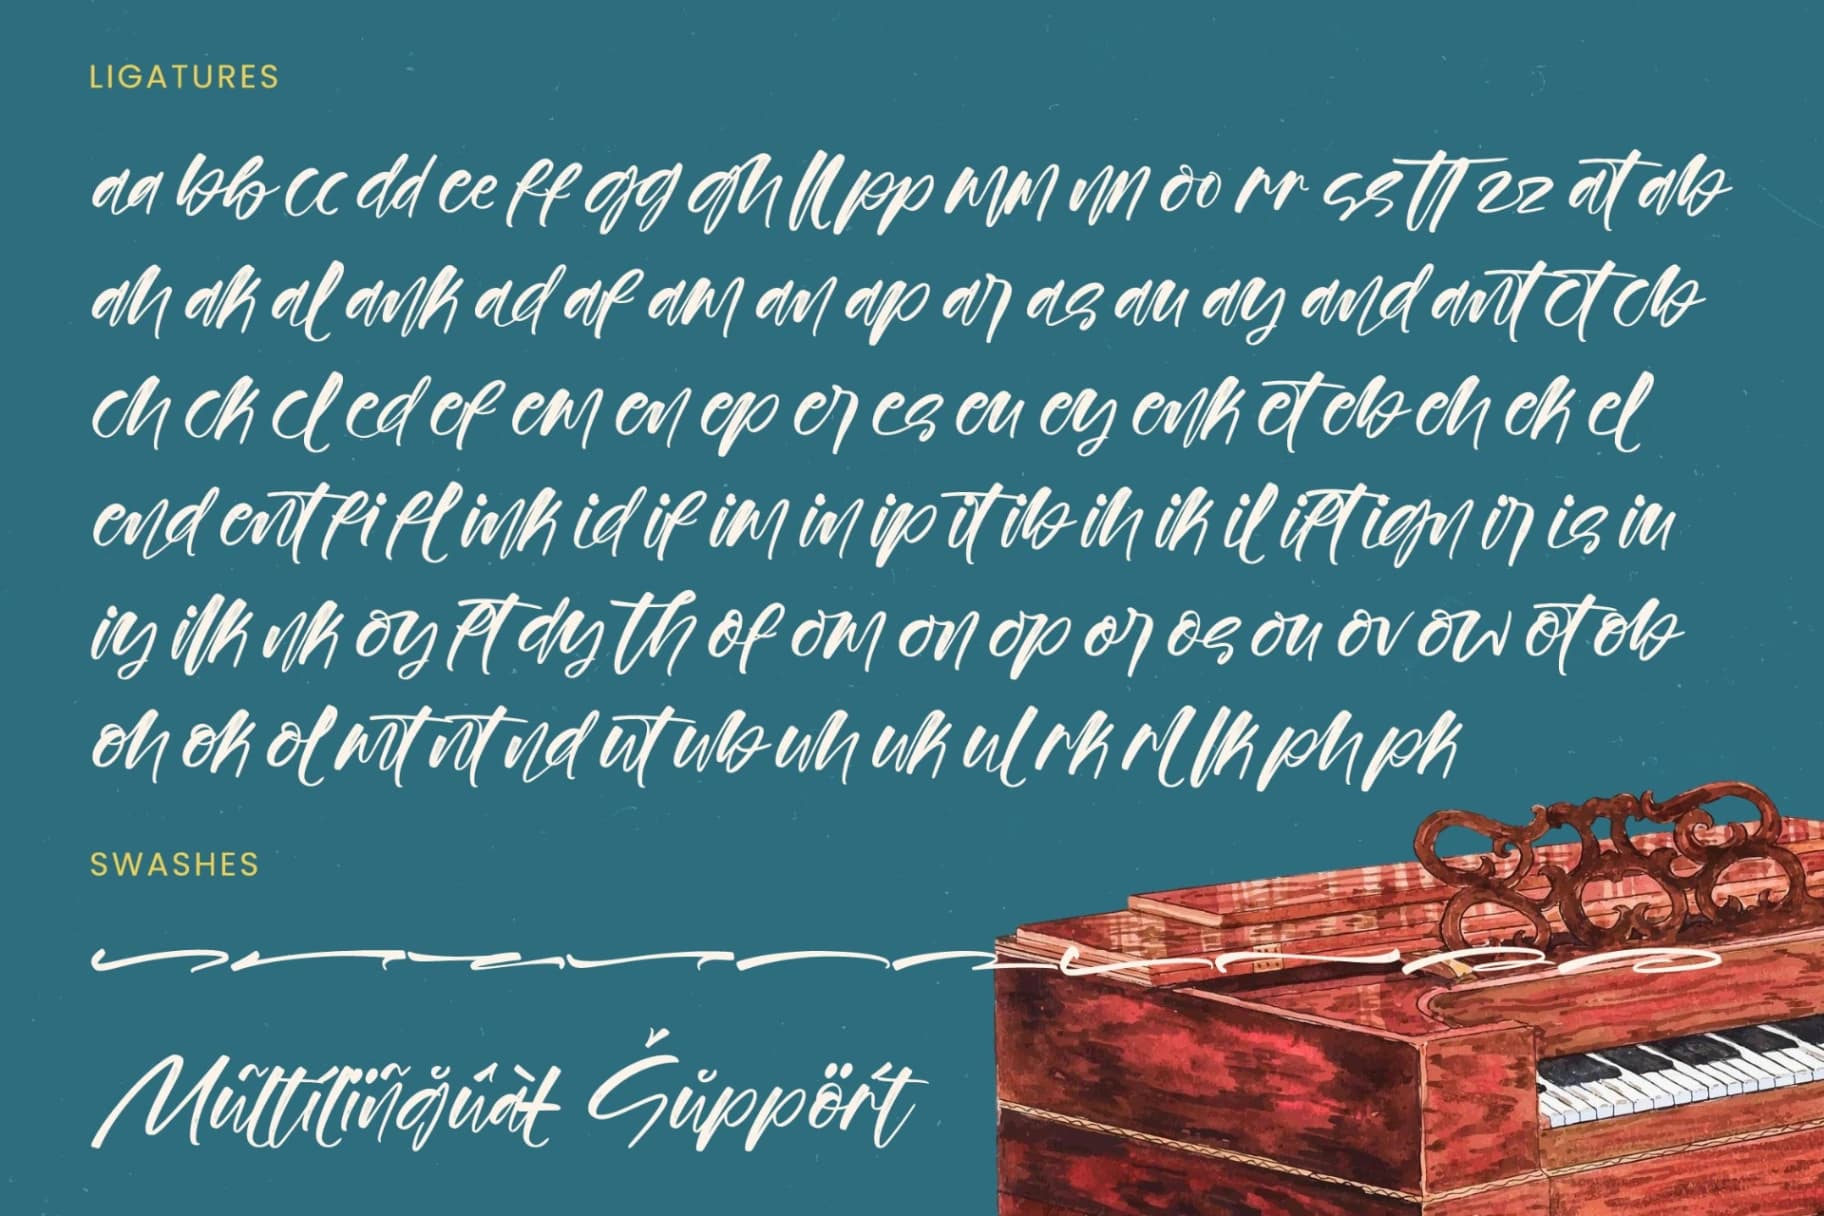 LIGATURES
aa bb cc dd ee ff gg gh ll pp mm nn oo rr ss tt zz at ab
ah ak al ank ad af am an ap ar as au ay and ant ct cb
ch ck cl ed ef em en ep er es eu ey enk et eb eh ek el
end ent fi fl ink id if im in ip it ib ih ik il ift ign ir is iu
iy ilk nk oy ft dy th of om on op or os ou ov ow ot ob
oh ok ol mt nt nd ut ub uh uk ul rk rl lk ph pk
SWASHES
Mũltíĺïñğûàł Šŭppöŕt